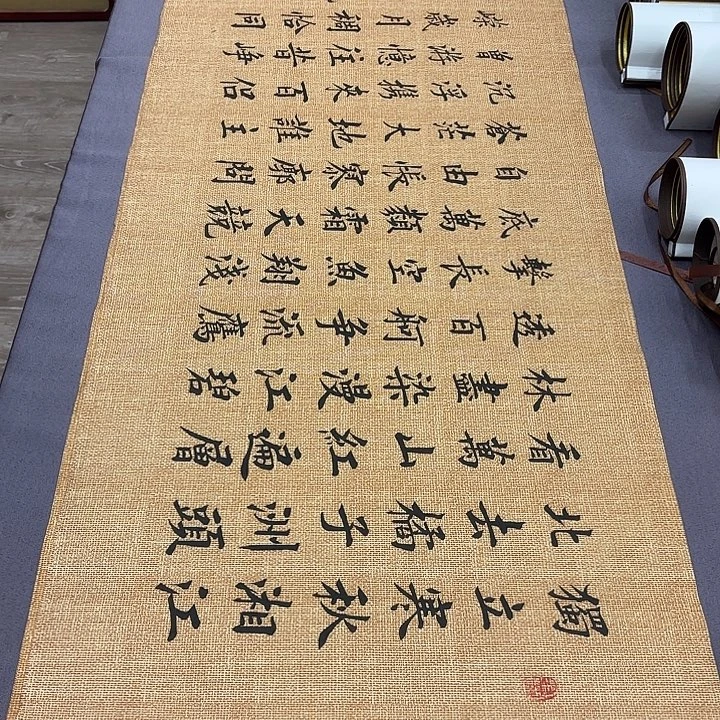 獨立寒秋湘江
北去橘子洲頭
看萬山紅遍層
林盡染漫江碧
透百舸争流鷹
擊長空魚翔淺
底萬類霜天競
自由悵寥廓問
蒼茫大地誰主
沉浮携來百侣
曾游憶往昔峥
嶸歲月稠恰同